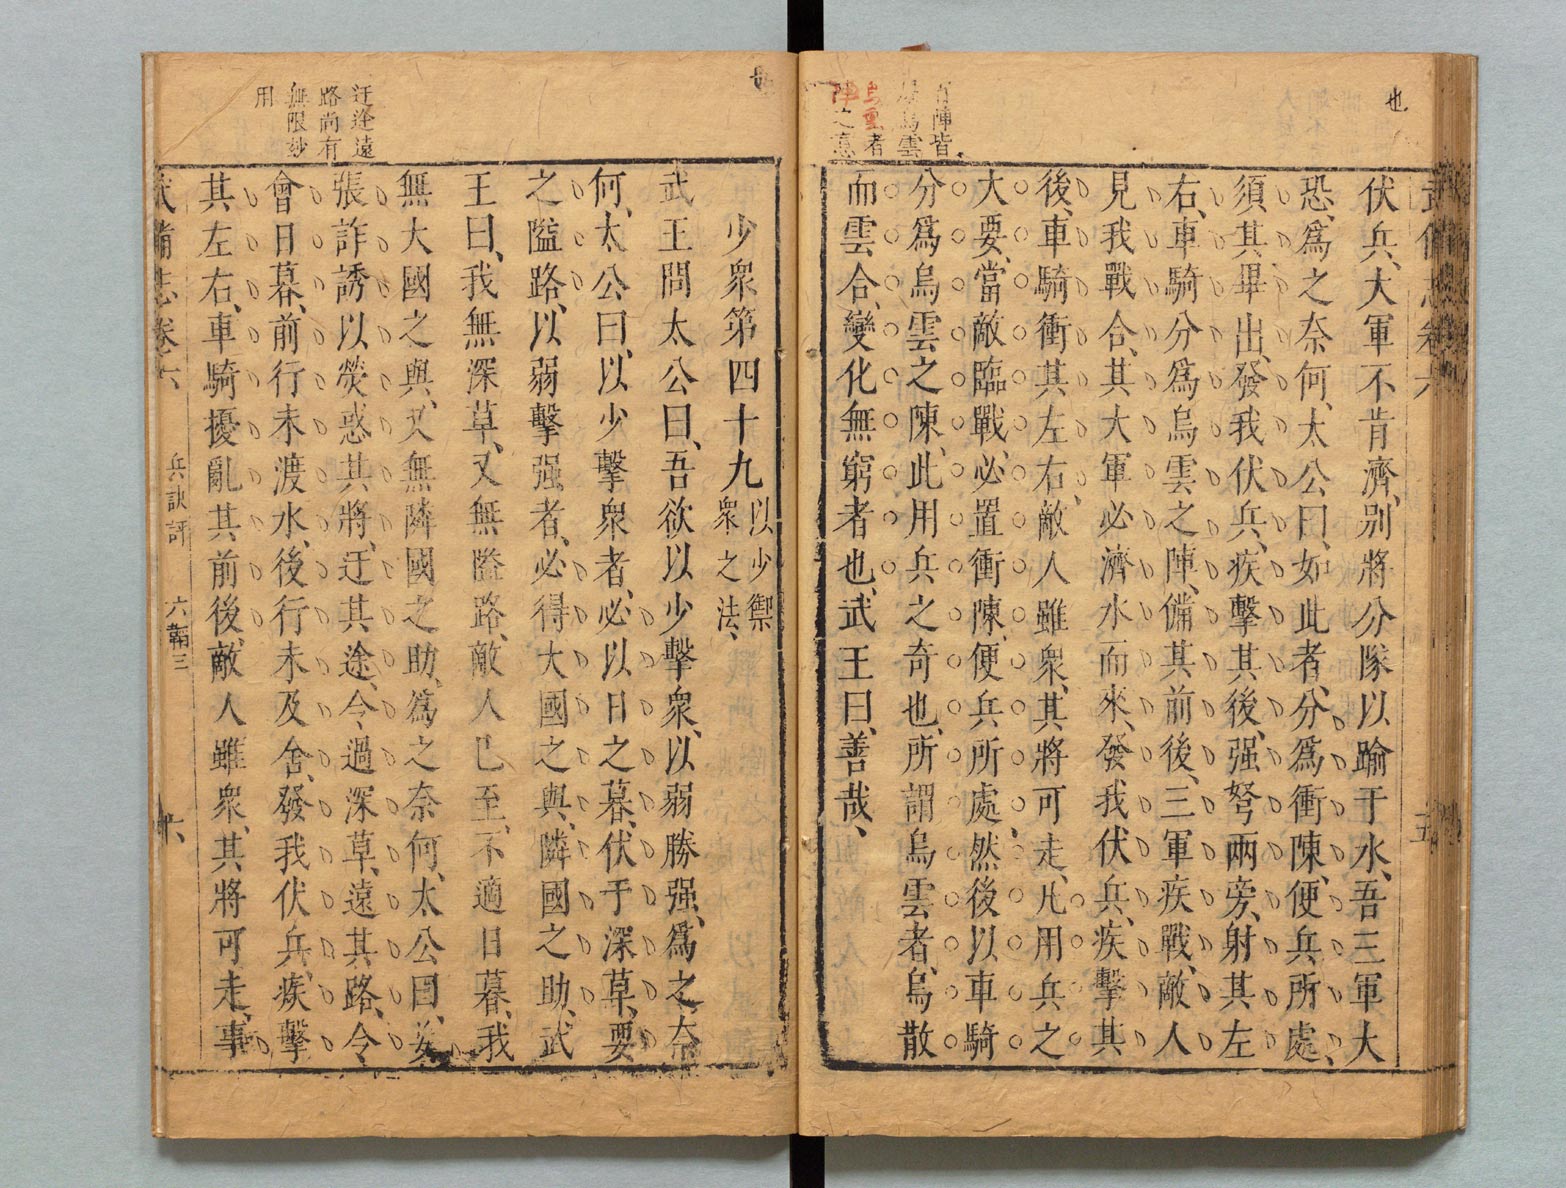 也
伏兵、大軍不肯濟、別將分隊以踰于水、吾三軍大
恐、爲之奈何、太公曰、如此者、分爲衝陳、便兵所處、
須其畢出、發我伏兵、疾擊其後、强弩兩旁、射其左
右、車騎分爲鳥雲之陣、備其前後、三軍疾戰、敵人
見我戰合、其大軍必濟水而來、發我伏兵、疾擊其
後、車騎衝其左右、敵人雖衆、其將可走、凡用兵之
大要、當敵臨戰、必置衝陳、便兵所處、然後以車騎
分爲烏雲之陳、此用兵之奇也、所謂烏雲者、烏散
而雲合、變化無窮者也、武王曰、善哉、
陣皆
烏雲
烏雲者
陣之意
少衆第四十九以少禦衆之法、
武王問太公曰、吾欲以少擊衆、以弱勝强、爲之奈
何、太公曰、以少擊衆者、必以日之暮、伏于深草、要
之隘路、以弱擊强者、必得大國之與、隣國之助、武
王曰、我無深草、又無隘路、敵人已至、不適日暮、我
無大國之與、又無隣國之助、爲之奈何、太公曰、妄
張詐誘、以熒惑其將、迂其途、令過深草、遠其路、令
會日暮、前行未渡水、後行未及舍、發我伏兵、疾擊
其左右、車騎擾亂其前後、敵人雖衆、其將可走、事
迂途遠
路尚有
無限玅
用
武備志卷六 兵訣評 六韜三